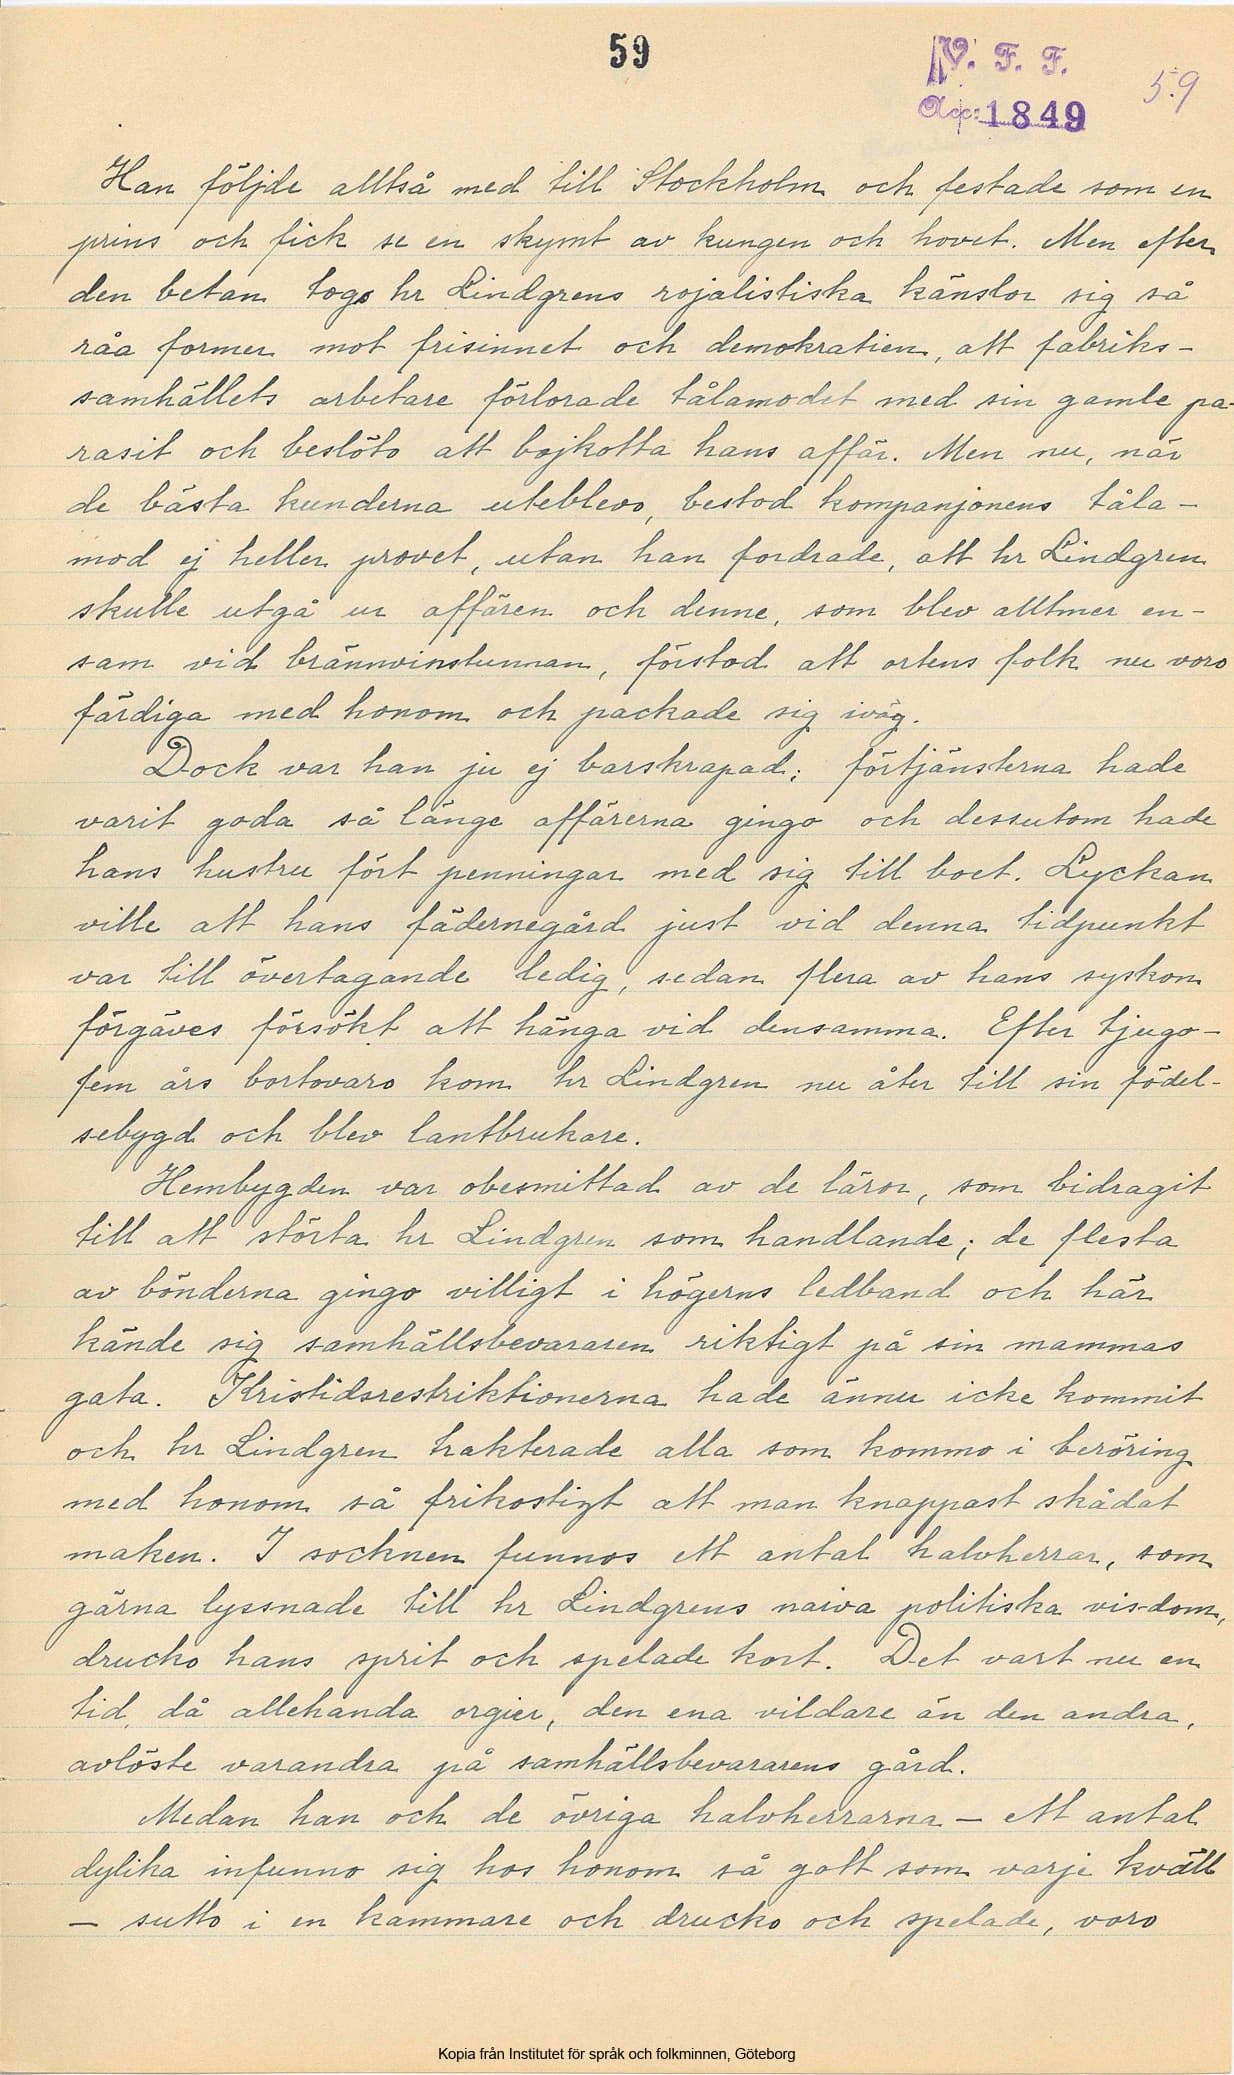 59
V. F. F.
59
Acc: 1849
Han följde alltså med till Stockholm och festade som en
prins och fick se en skymt av kungen och hovet. Men efter
den betan togo hr Lindgrens rojalistiska känslor sig så
råa former mot frisinnet och demokratien, att fabriks-
samhällets arbetare förlorade tålamodet med sin gamle pa-
rasit och beslöto att bojkotta hans affär. Men nu, när
de bästa kunderna uteblevo, bestod kompanjonens tåla-
mod ej heller provet, utan han fordrade, att hr Lindgren
skulle utgå ur affären och denne, som blev alltmer en-
sam vid brännvinstunnan, förstod att ortens folk nu voro
färdiga med honom och packade sig iväg.
Dock var han ju ej barskrapad; förtjänsterna hade
varit goda så länge affärerna gingo och dessutom hade
hans hustru fört penningar med sig till boet. Lyckan
ville att hans fädernegård just vid denna tidpunkt
var till övertagande ledig, sedan flera av hans syskon
förgäves försökt att hänga vid densamma. Efter tjugo-
fem års bortovaro kom hr Lindgren nu åter till sin födel-
sebygd och blev lantbrukare.
Hembygden var obesmittad av de läror, som bidragit
till att störta hr Lindgren som handlande; de flesta
av bönderna gingo villigt i högerns ledband och här
kände sig samhällsbevararen riktigt på sin mammas
gata. Kristidsrestriktionerna hade ännu icke kommit
och hr Lindgren trakterade alla som kommo i beröring
med honom så frikostigt att man knappast skådat
maken. I socknen funnos ett antal halvherrar, som
gärna lyssnade till hr Lindgrens naiva politiska visdom,
drucko hans sprit och spelade kort. Det vart nu en
tid, då allehanda orgier, den ena vildare än den andra,
avlöste varandra på samhällsbevararens gård.
Medan han och de övriga halvherrarna — ett antal
dylika infunno sig hos honom så gott som varje kväll
— sutto i en kammare och drucko och spelade, voro
Kopia från Institutet för språk och folkminnen, Göteborg